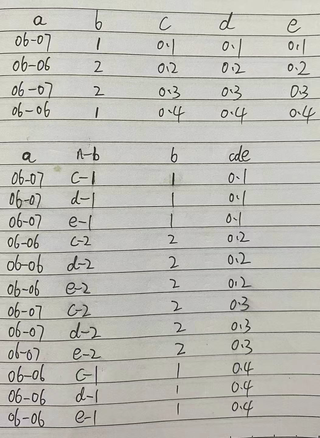 a b c d e
06-07 1 0.1 0.1 0.1
06-06 2 0.2 0.2 0.2
06-07 2 0.3 0.3 0.3
06-06 1 0.4 0.4 0.4
a n-b b cde
06-07 c-1 1 0.1
06-07 d-1 1 0.1
06-07 e-1 1 0.1
06-06 c-2 2 0.2
06-06 d-2 2 0.2
06-06 e-2 2 0.2
06-07 c-2 2 0.3
06-07 d-2 2 0.3
06-07 e-2 2 0.3
06-06 c-1 1 0.4
06-06 d-1 1 0.4
06-06 e-1 1 0.4